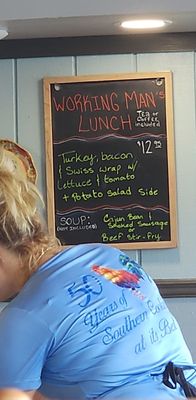 Working Man's
Lunch
Tea or
Coffee
included
$12.99
Turkey, bacon
& Swiss wrap w/
Lettuce & tomato
+ Potato Salad Side
Soup:
(not included)
Cajun Bean &
Smoked Sausage
or
Beef Stir-fry
50
Years of
Southern
at its Be